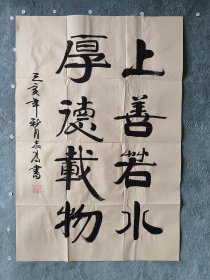 上善若水
厚德載物
己亥年秋月志屬書